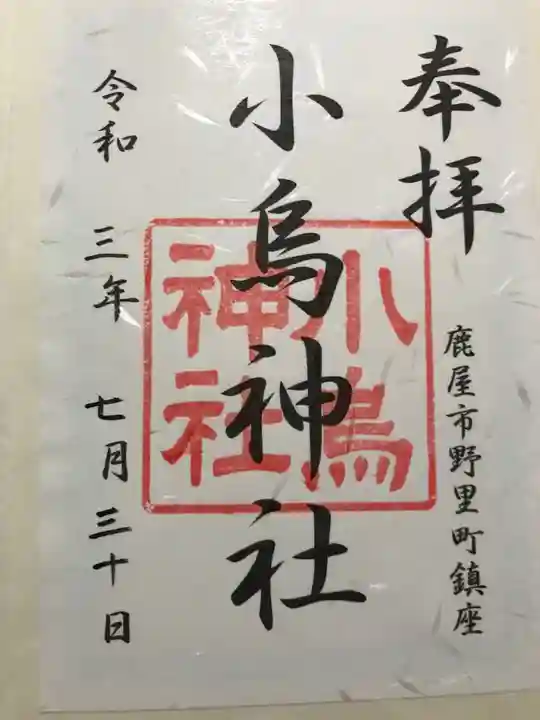 奉拝
鹿屋市野里町鎮座
小烏神社
小烏神社
令和 三年 七月 三十日